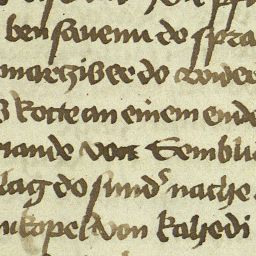 ben fauenn do ſpra
marchis er do wider
kotte an einem ende
mande von Semblic
lag do ſund' nache
nkopel von kahedi